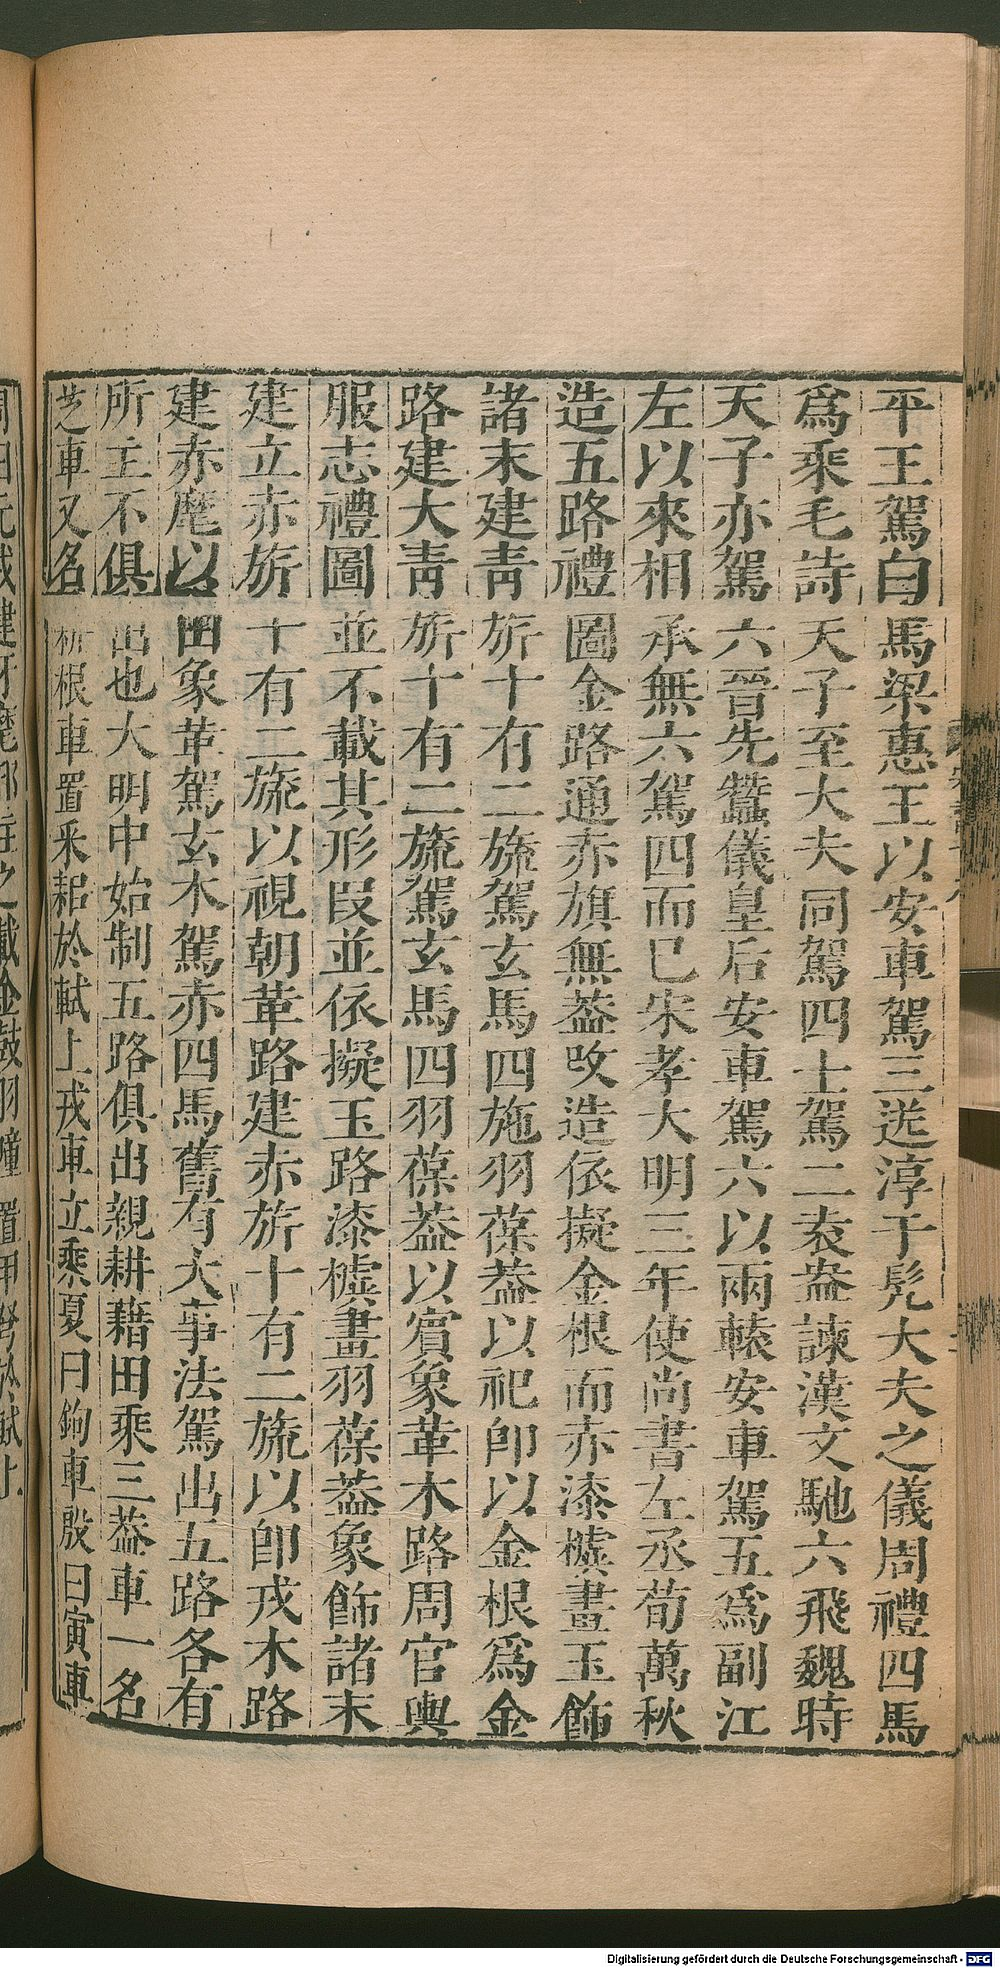 平王駕白馬梁惠王以安車駕三送淳于髡大夫之儀周禮四馬
爲乘毛詩天子至大夫同駕四士駕二袁盎諫漢文馳六飛魏時
天子亦駕六晉先蠶儀皇后安車駕六以兩轅安車駕五爲副江
左以來相承無六駕四而已宋孝大明三年使尚書左丞荀萬秋
造五路禮圖金路通赤旗無蓋改造依擬金根而赤漆樚畫玉飾
諸末建青旂十有二旒駕玄馬四施羽葆蓋以祀卽以金根爲金
路建大青旂十有二旒駕玄馬四羽葆蓋以賓象革木路周官輿
服志禮圖並不載其形叚並依擬玉路漆樚畫羽葆蓋象飾諸末
建立赤旂十有二旒以視朝革路建赤旂十有二旒以卽戎木路
建赤麾以田象革駕玄木駕赤四馬舊有大事法駕出五路各有
所主不俱出也大明中始制五路俱出親耕籍田乘三蓋車一名
芝車又名耕根車置耒耜於軾上戎車立乘夏曰鉤車殷曰寅車
Digitalisierung gefördert durch die Deutsche Forschungsgemeinschaft - DFG